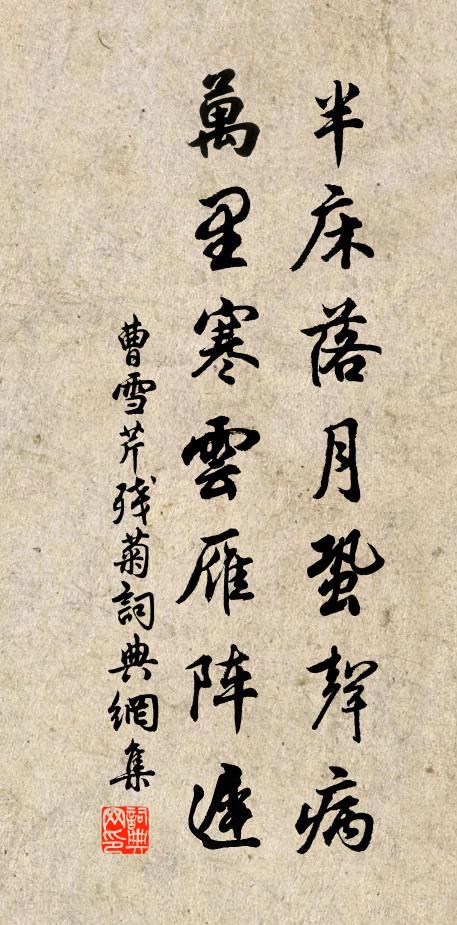 半床落月蛩聲病
萬里寒雲雁阵遲
曹雪芹残菊詞典網集
詞典网印